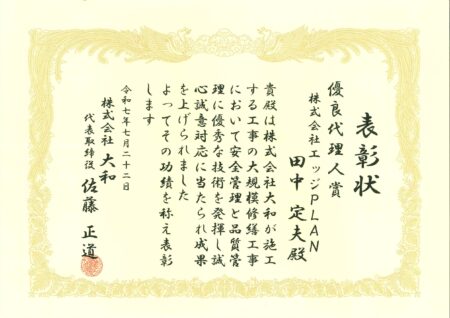 表彰状
優良代理人賞
株式会社エッジPLAN
田中 定夫殿
貴殿は株式会社大和が施工
する工事の大規模修繕工事
において安全管理と品質管
理に優秀な技術を発揮し誠
心誠意対応に当たられ成果
を上げられました
よってその功績を称え表彰
します
令和七年七月二十二日
株式会社 大和
代表取締役 佐藤 正道